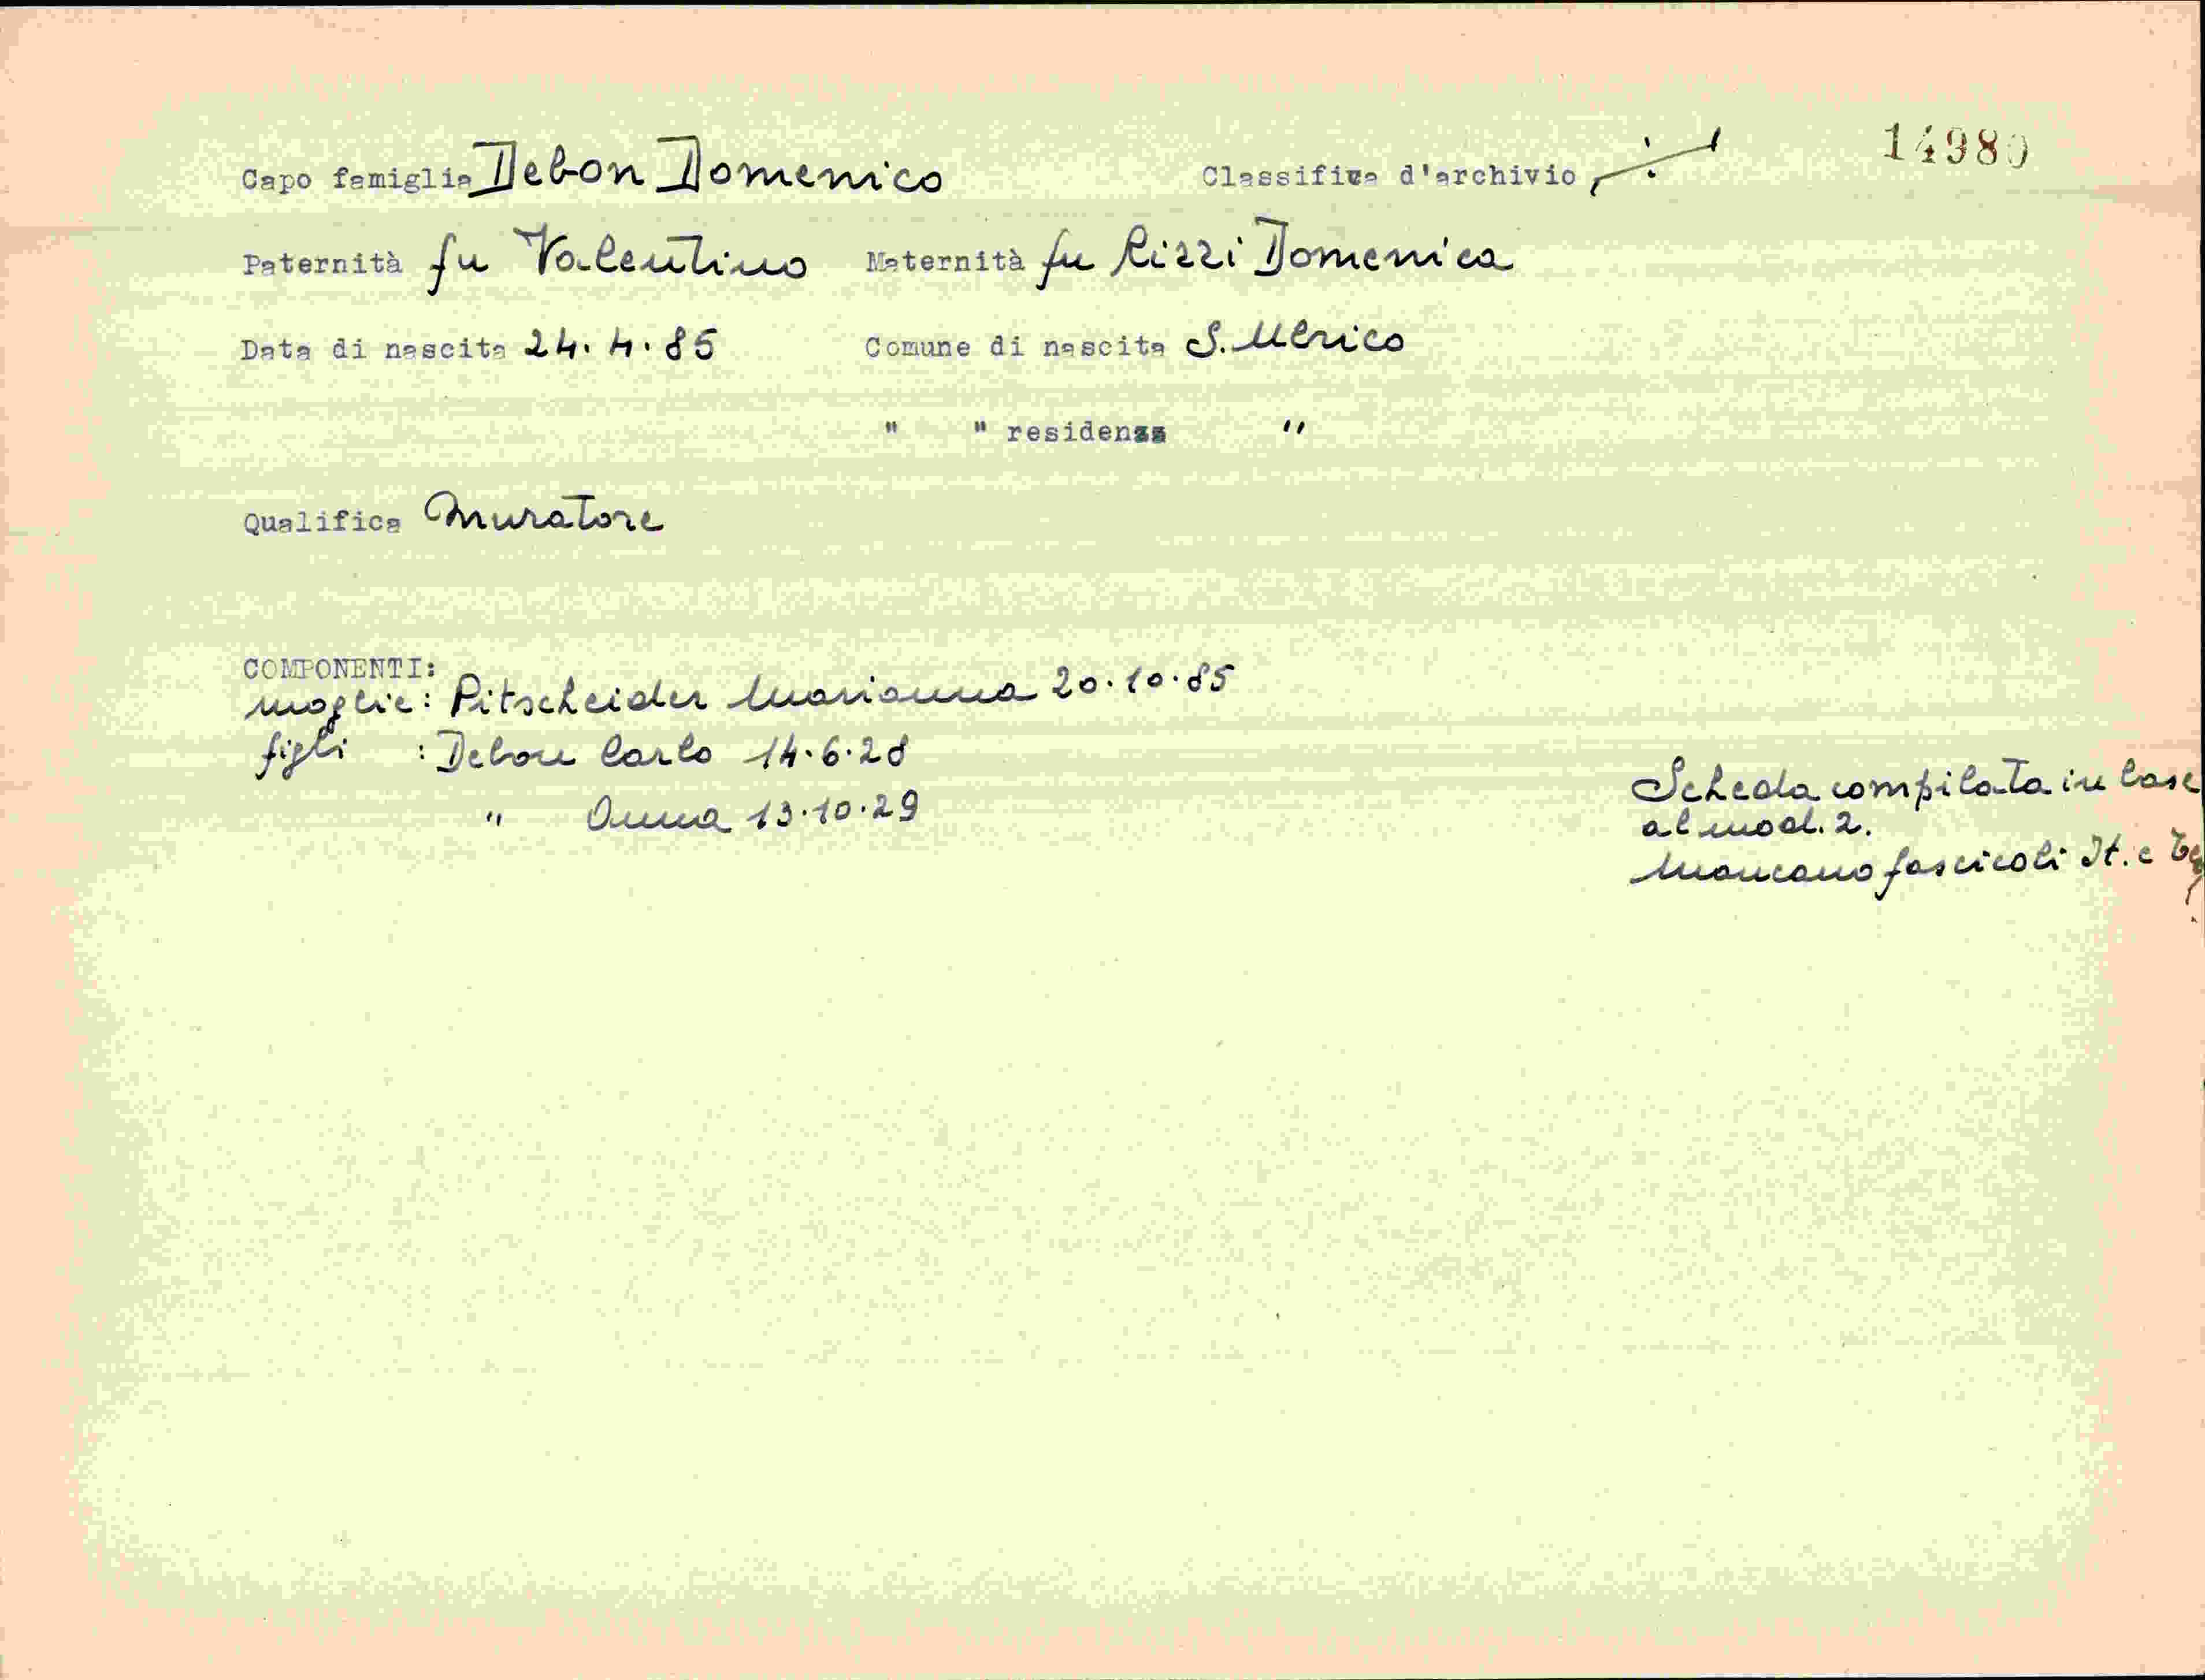 14980
Capo famiglia Debon Domenico Classifica d'archivio ./.
Paternità fu Valentino Maternità fu Rizzi Domenica
Data di nascita 24.4.85 Comune di nascita S. Ulrico
" " residenza "
Qualifica Muratore
COMPONENTI:
moglie: Pitscheider Marianna 20.10.85
figli : Debon Carlo 14.6.28
" Anna 13.10.29
Scheda compilata in base
al mod. 2.
Mancano fascicoli It. e